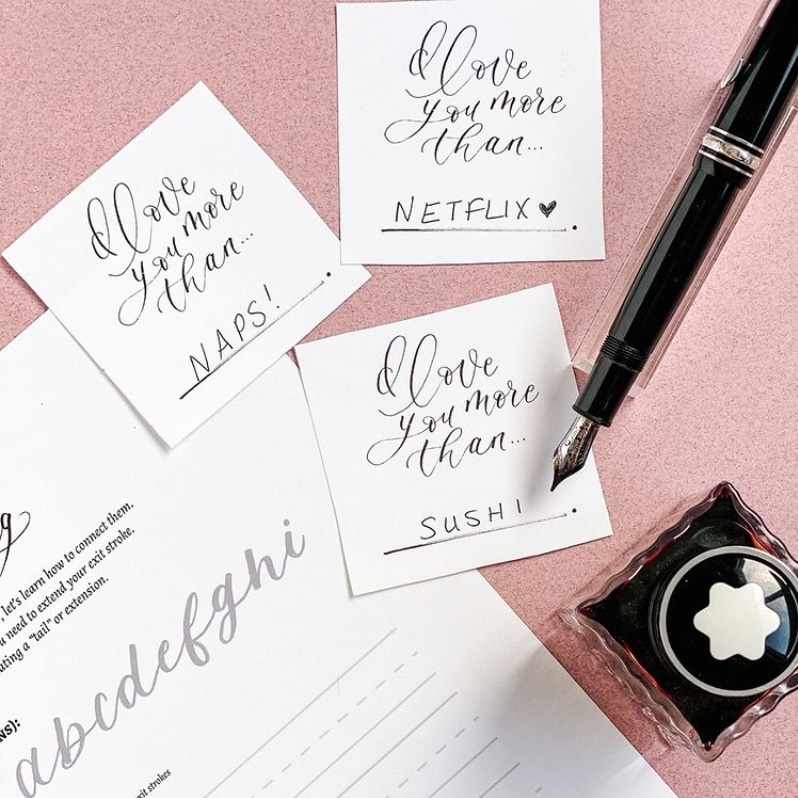 I love
you more
than...
NETFLIX ♥.
I love
you more
than...
NAPS!.
I love
you more
than...
SUSHI.
let's learn how to connect them.
need to extend your exit stroke.
a "tail" or extension.
abcdefghi
exit strokes